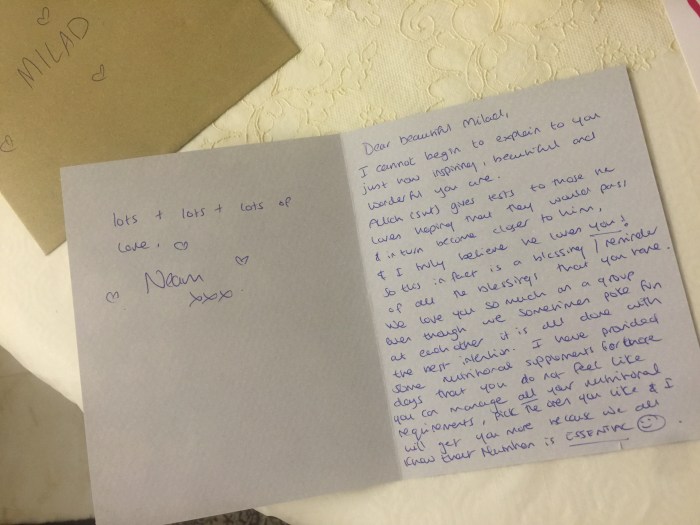 MILAD
lots + lots + lots of
love,
xxx
Dear beautiful Milad,
I cannot begin to explain to you
just how inspiring, beautiful and
wonderful you are.
Allah (swt) gives tests to those he
loves hoping that they would pass,
& in turn become closer to him,
& I truly believe he loves you!
So this in fact is a blessing / reminder
of all the blessings that you have.
We love you so much as a group
even though we sometimes poke fun
at each other it is all done with
the best intention. I have provided
some nutritional supplements for those
days that you do not feel like
you can manage all your nutritional
requirements, pick the ones you like & I
will get you more because we all
know that Nutrition is ESSENTIAL